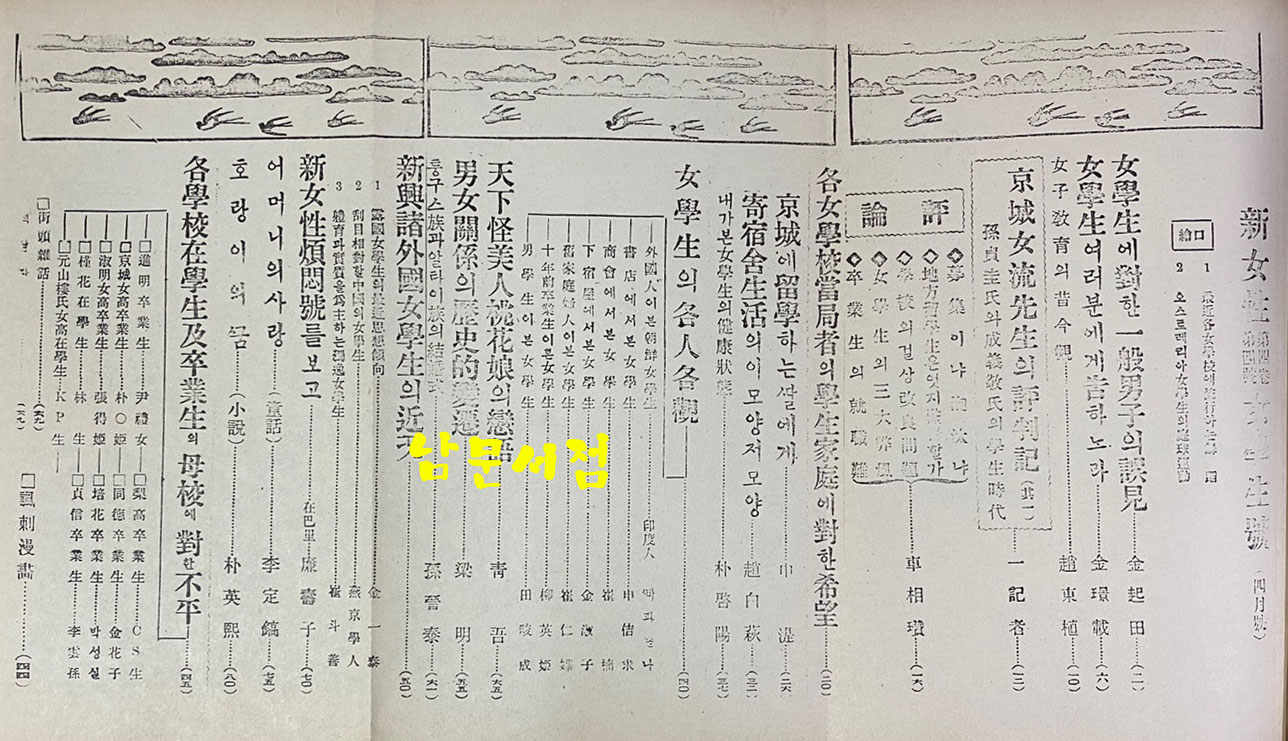 新女性 第四卷 第四號 女學生號 (四月號)
口繪
1 最近各女學校에
2 오스트레리아女學生의
女學生에對한一般男子의誤見 金起田 (二)
女學生여러분에게告하노라 金環載 (六)
女子敎育의昔今觀 趙東植 (一〇)
京城女流先生의評判記 (其一) 一記者 (一二)
孫貞圭氏와成義敬氏의學生時代
評論 車相瓚 (一六)
◇募集이냐
◇地方留學生은엇지
◇學校의걸상改良問題
◇女學生의三大
◇卒業生의就職難
各女學校當局者의學生家庭에對한希望 (二〇)
京城에留學하는쌀에게 申湜 (二六)
寄宿舍生活의이모양저모양 趙白萩 (三二)
내가본女學生의健康狀態 朴啓陽 (三七)
女學生의各人各觀 (四〇)
外國人이본朝鮮女學生 印度人
書店에서본女學生 申佶求
商會에서본女學生 崔楠
下宿屋에서본女學生 金淑子
舊家庭婦人이본女學生 崔仁
十年前卒業生이본女學生 柳英姬
男學生이본女學生 田畯成
天下怪美人桃花娘의戀語 靑吾 (六五)
男女關係의歷史的變遷 梁明 (五五)
퉁구스族과알타이族의結婚式 孫晉泰 (六一)
新興諸外國女學生의近 (五〇)
1 露國女學生의最近思想傾向 金一泰
2 刮目相對할中國의女學生 燕京學人
3 體育과實質을爲主하는獨逸女學生 崔斗善
新女性煩悶號를보고 在巴里 廉壽子 (七〇)
어머니의사랑 (童話) 李定鎬 (七五)
호랑이의꿈 (小說) 朴英熙 (八〇)
各學校在學生及卒業生의母校에對한不平 (四五)
□進明卒業生 尹禮女 □梨高卒業生 CS生
□京城女高卒業生 朴〇姬 □同德卒業生 金花子
□淑明女高卒業生 張得姬 □培花卒業生 박성실
□槿花在學生 林生 □貞信卒業生 李雲孫
□元山樓氏女高在學生 KP生
□街頭雜話 (六九) □諷刺漫畵 (四四)
남문서점